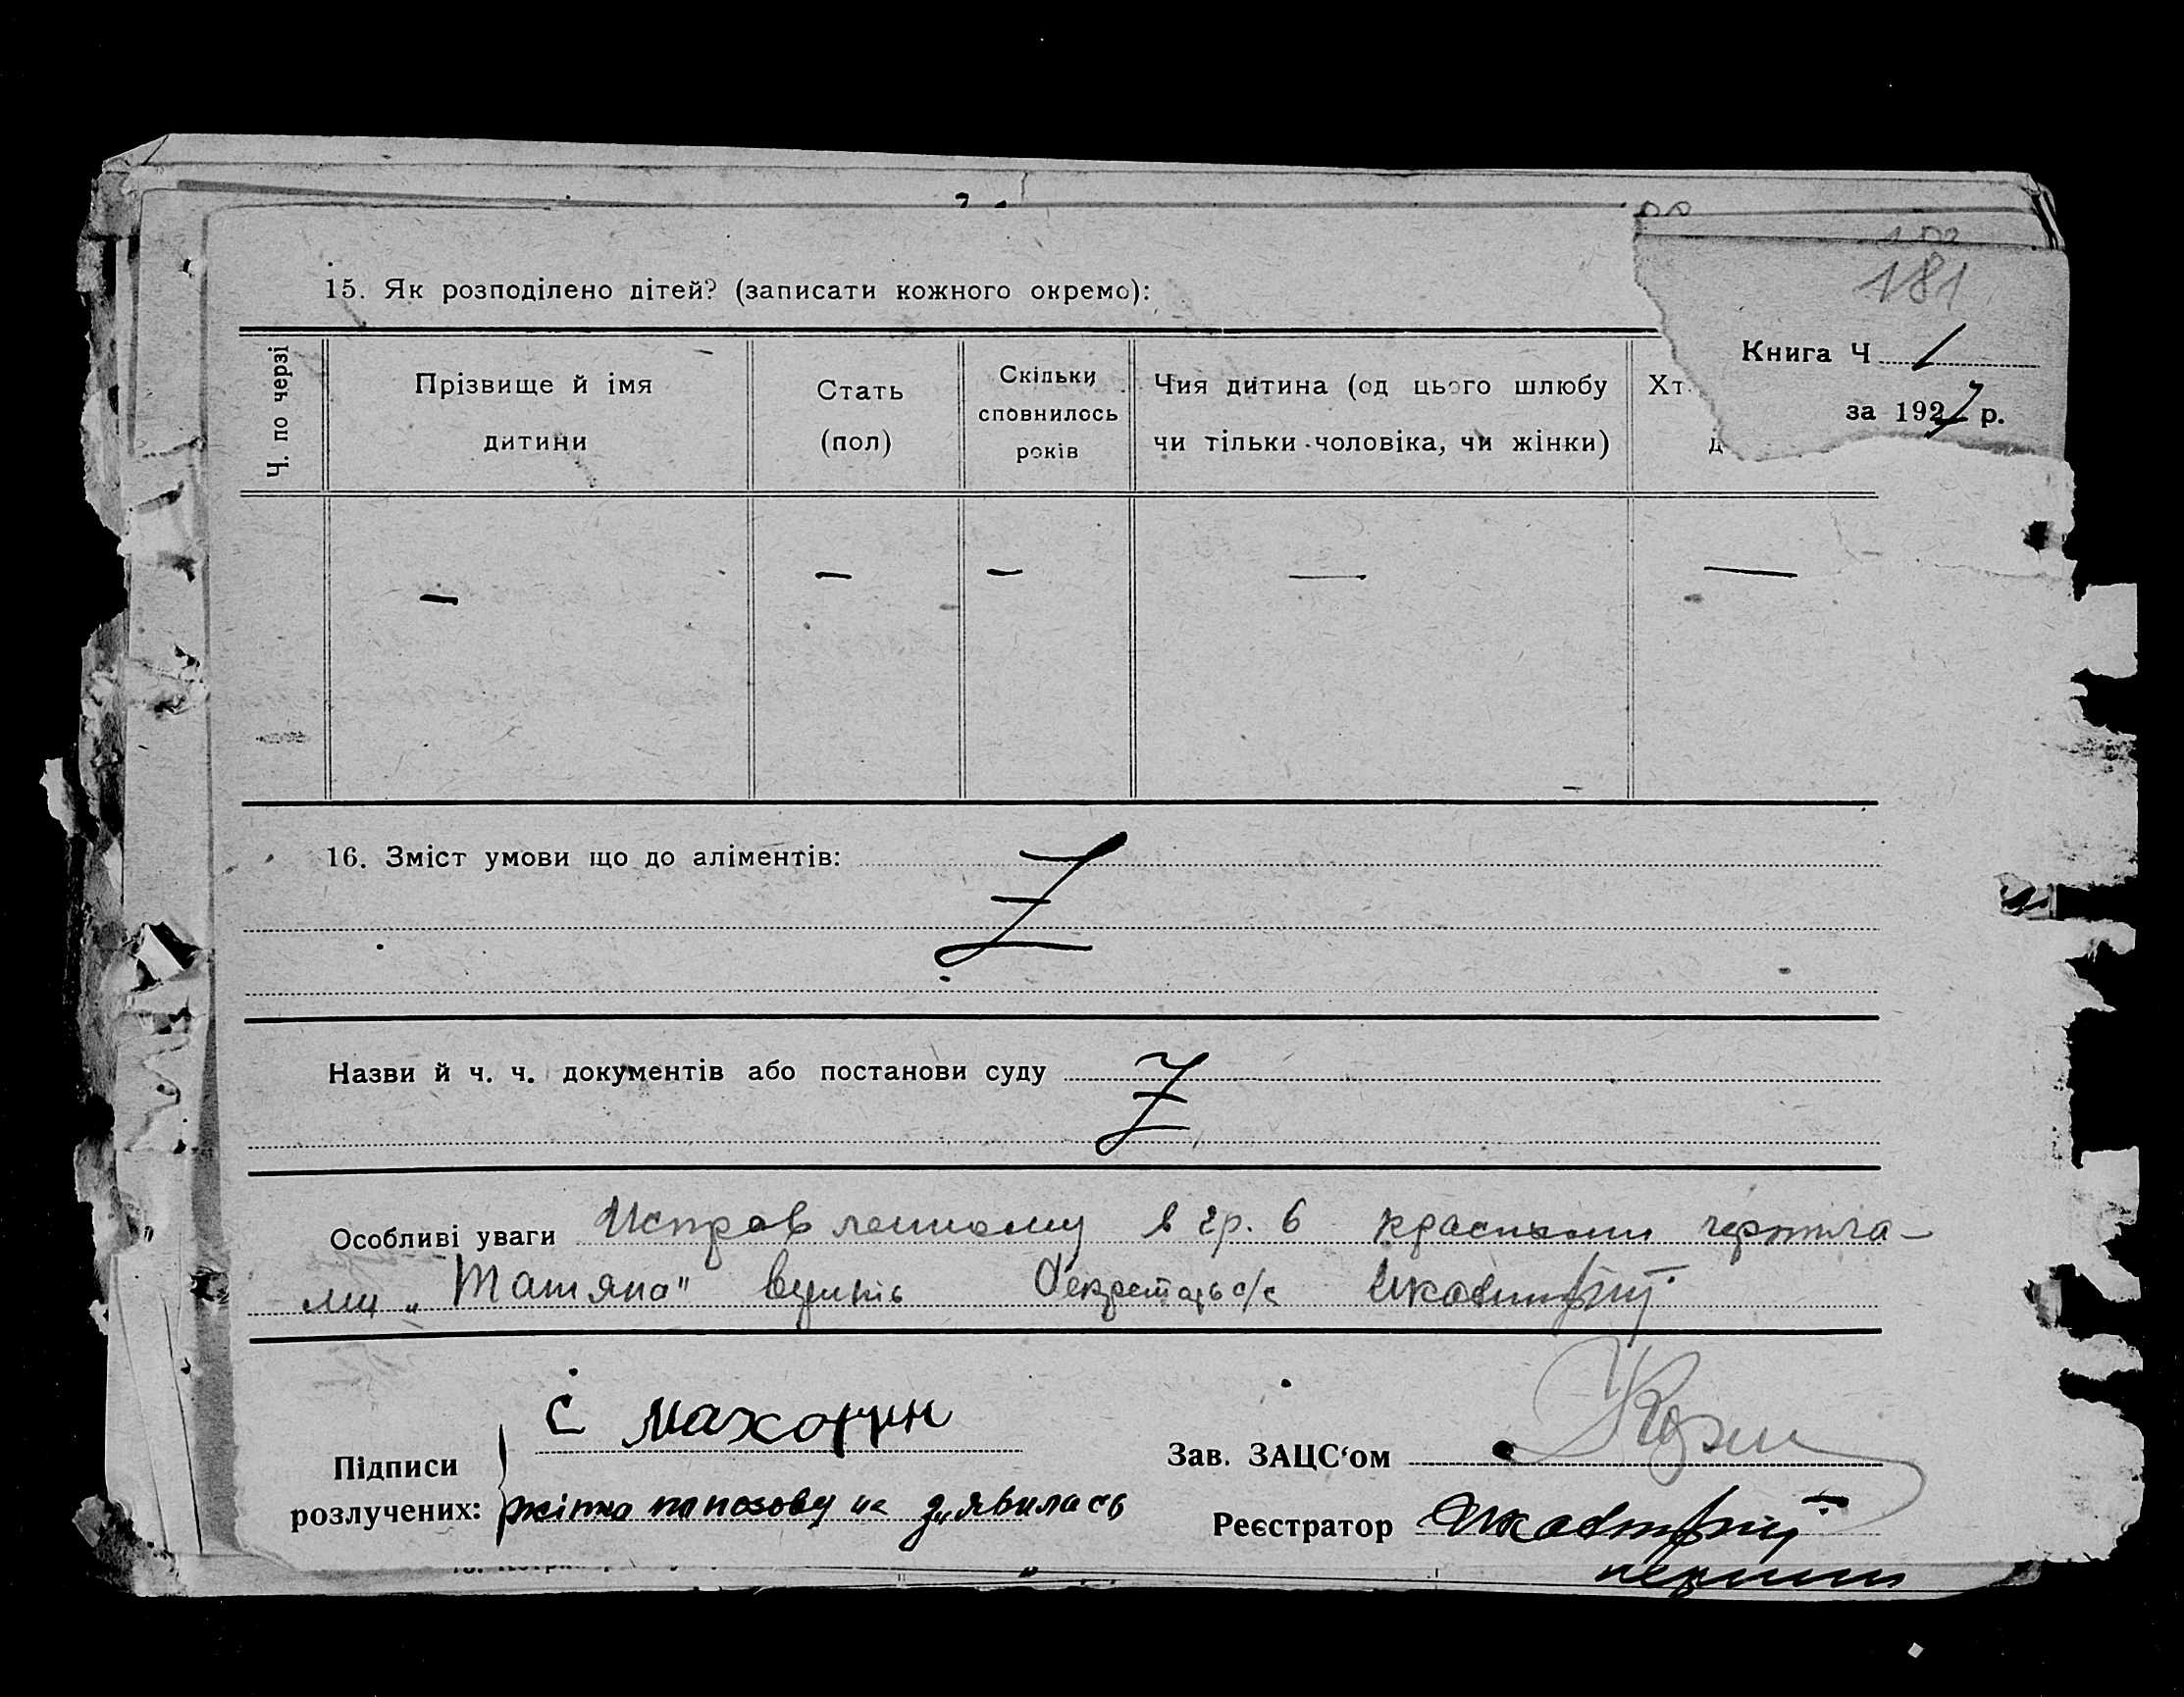 181
Книга Ч 1
за 1927 р.
15. Як розподілено дітей? (записати кожного окремо):
Ч. по черзі
Прізвище й імя
дитини
Стать
(пол)
Скільки
сповнилось
років
Чия дитина (од цього шлюбу
чи тільки чоловіка, чи жінки)
Хт
д
— — — — —
16. Зміст умови що до аліментів: Z
Назви й ч. ч. документів або постанови суду Z
Особливі уваги Исправленному в гр. 6 красными чернила-
ми „Татяна" верить Секретарь с/с
С Махотин
Підписи
розлучених:
жінка по позову не зъявилась
Зав. ЗАЦС‘ом
Реєстратор